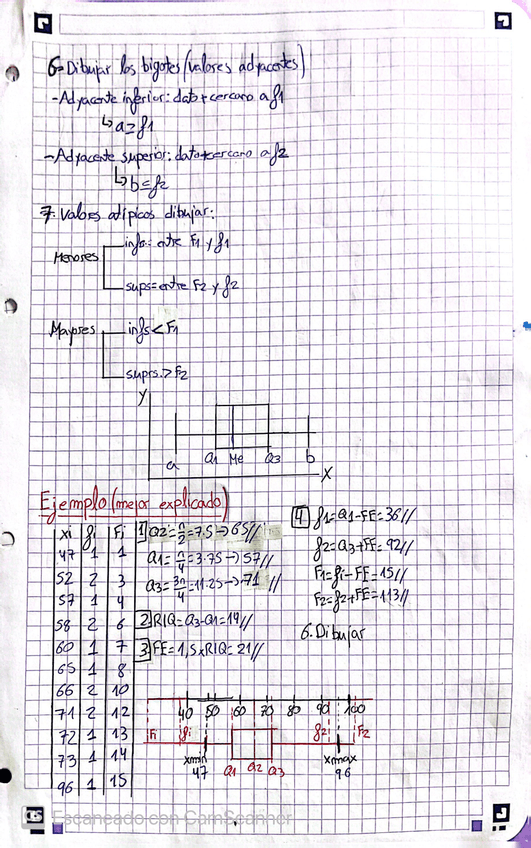 6- Dibujar los bigotes (valores adyacentes)
- Adyacente inferior: dato + cercano a f1
↳ a ≥ f1
- Adyacente superior: dato + cercano a f2
↳ b ≤ f2
7. Valores atípicos dibujar:
Menores
infs: entre F1 y f1
sups = entre F2 y f2
Mayores
infs < F1
suprs. > F2
Y
a Q1 Me Q3 b
X
Ejemplo (mejor explicado)
xi fi Fi
47 1 1
52 2 3
57 1 4
58 2 6
60 1 7
65 1 8
66 2 10
71 2 12
72 1 13
73 1 14
96 1 15
1 Q2 = n/2 = 7.5 → 65//
Q1 = n/4 = 3.75 → 57//
Q3 = 3n/4 = 11.25 → 71 //
2 RIQ = Q3 - Q1 = 14//
3 FE = 1,5 x RIQ = 21//
4 f1 = Q1 - FE = 36//
f2 = Q3 + FE = 92//
F1 = fi - FE = 15//
F2 = f2 + FE = 113//
6. Dibujar
40 50 60 70 80 90 100
Fi fi f2 F2
xmin
47
Q1 Q2 Q3
xmax
96
CS Escaneado con CamScanner